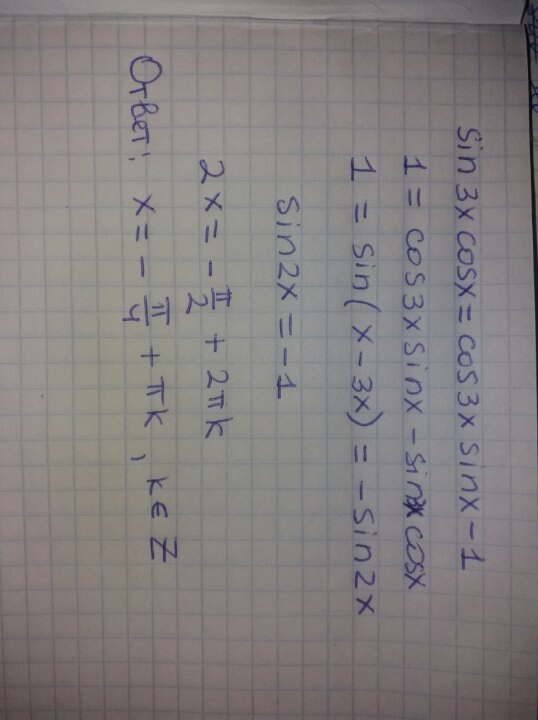 sin 3x cosx = cos 3x sinx - 1
1 = cos3x sinx - sin3x cosx
1 = sin(x - 3x) = - sin 2x
sin2x = -1
2x = - π/2 + 2πk
Ответ: x = - π/4 + πk, k ∈ Z